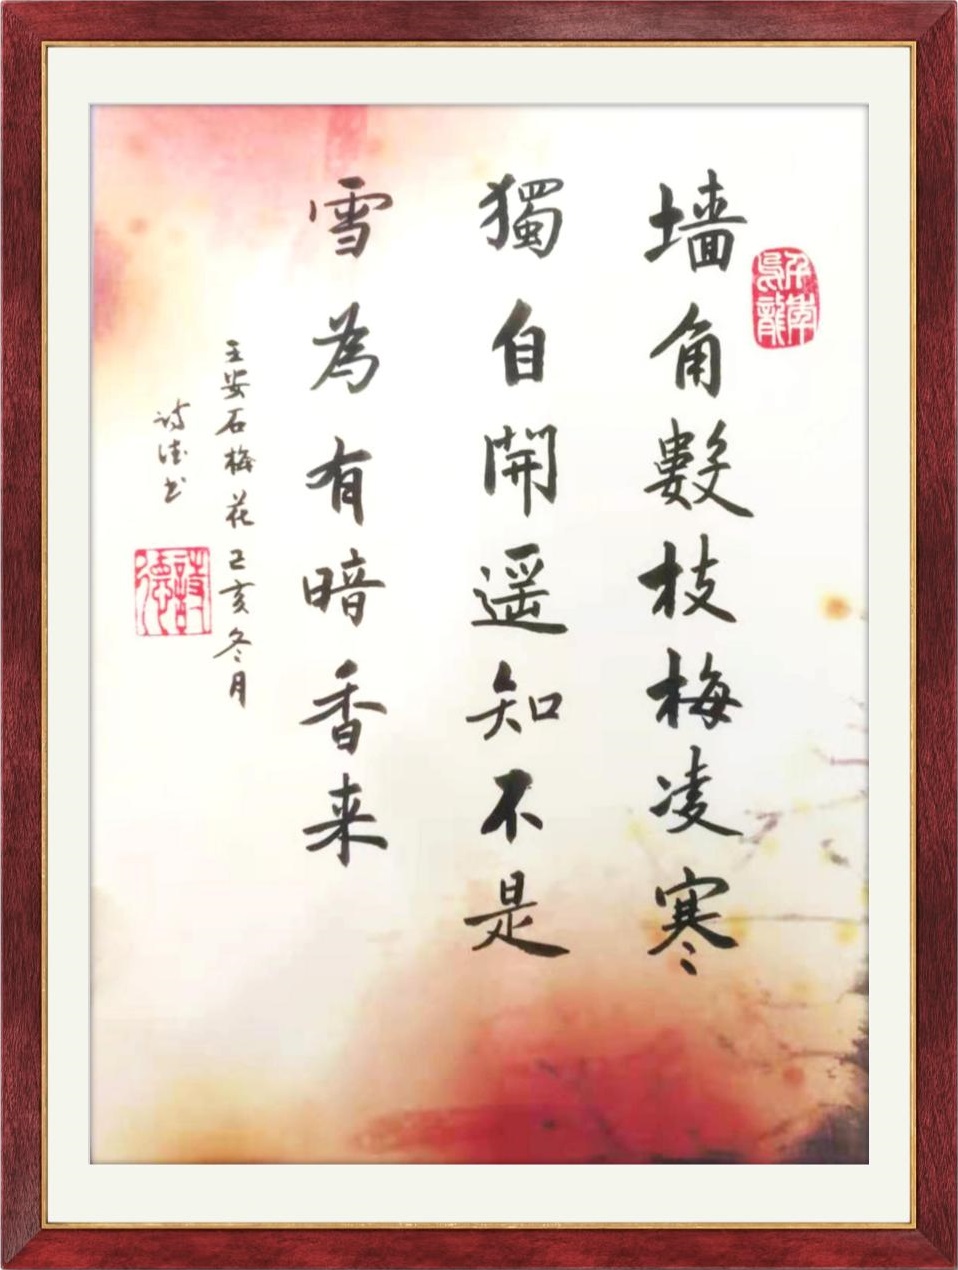 墙角數枝梅凌寒
獨自開遥知不是
雪為有暗香来
王安石梅花己亥冬月
诗德书
詩德